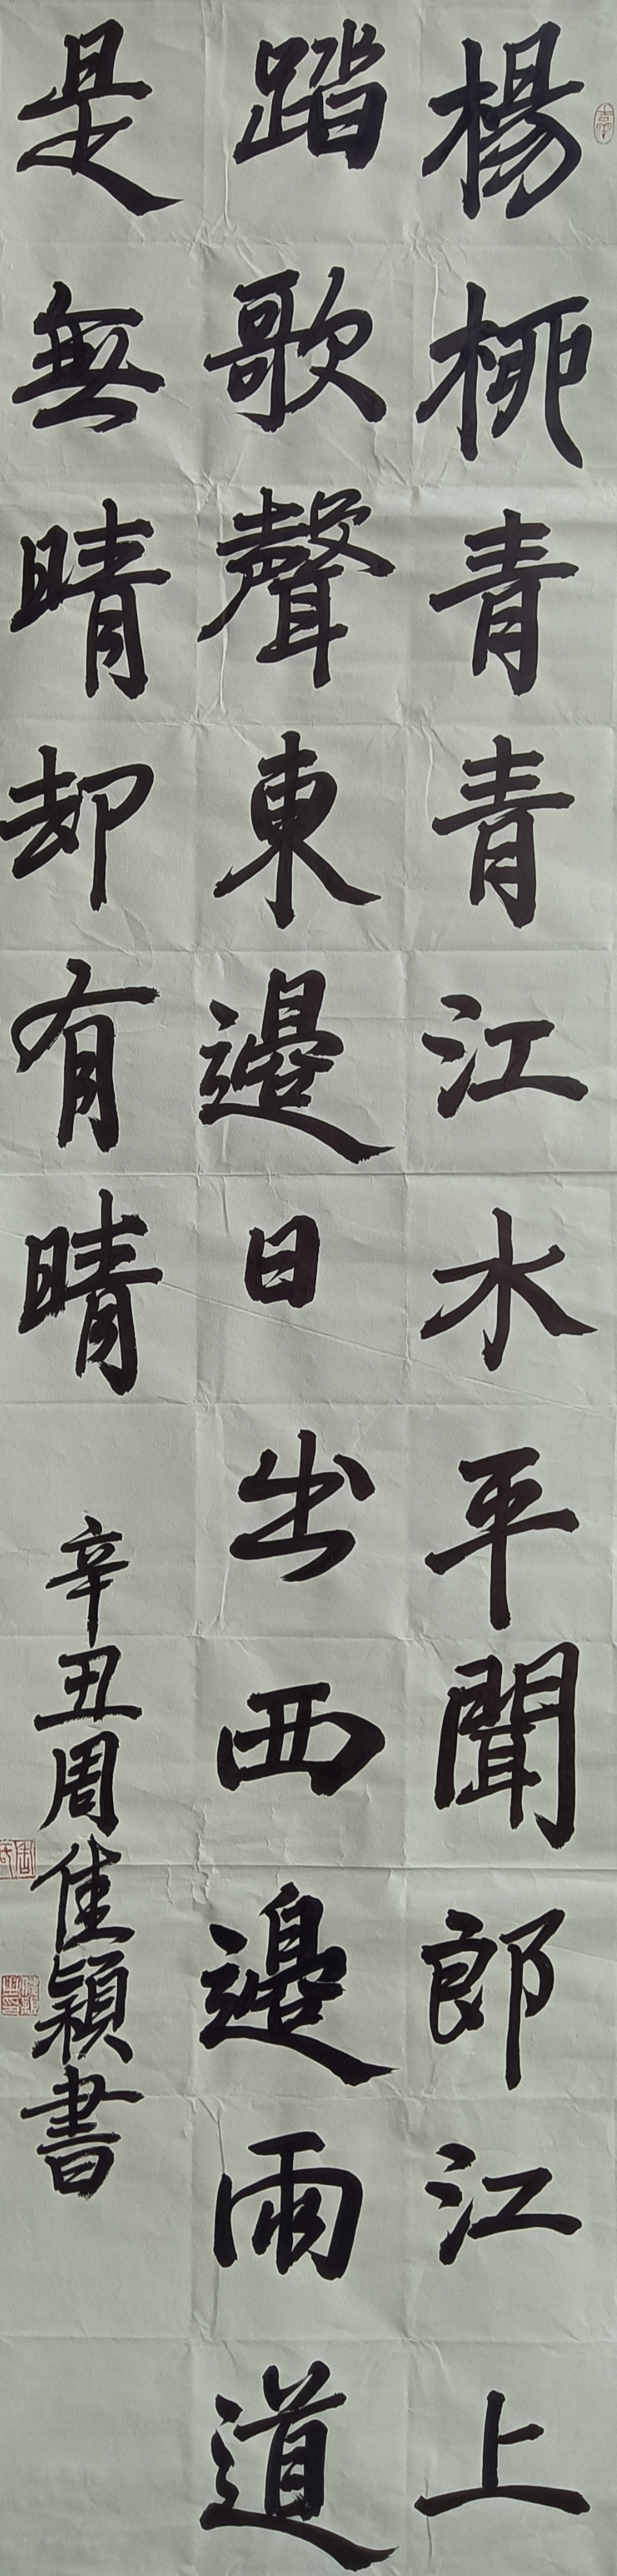 楊柳青青江水平聞郎江上
踏歌聲東邊日出西邊雨道
是無晴却有晴
辛丑周佳穎書